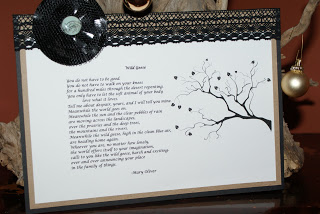 Wild Geese
You do not have to be good.
You do not have to walk on your knees
for a hundred miles through the desert repenting.
you only have to let the soft animal of your body
love what it loves.
Tell me about despair, yours, and I will tell you mine.
Meanwhile the world goes on.
Meanwhile the sun and the clear pebbles of rain
are moving across the landscapes,
over the prairies and the deep trees,
the mountains and the rivers.
Meanwhile the wild geese, high in the clean blue air,
are heading home again.
Whoever you are, no matter how lonely,
the world offers itself to your imagination,
calls to you like the wild geese, harsh and exciting
over and over announcing your place
in the family of things.
-Mary Oliver